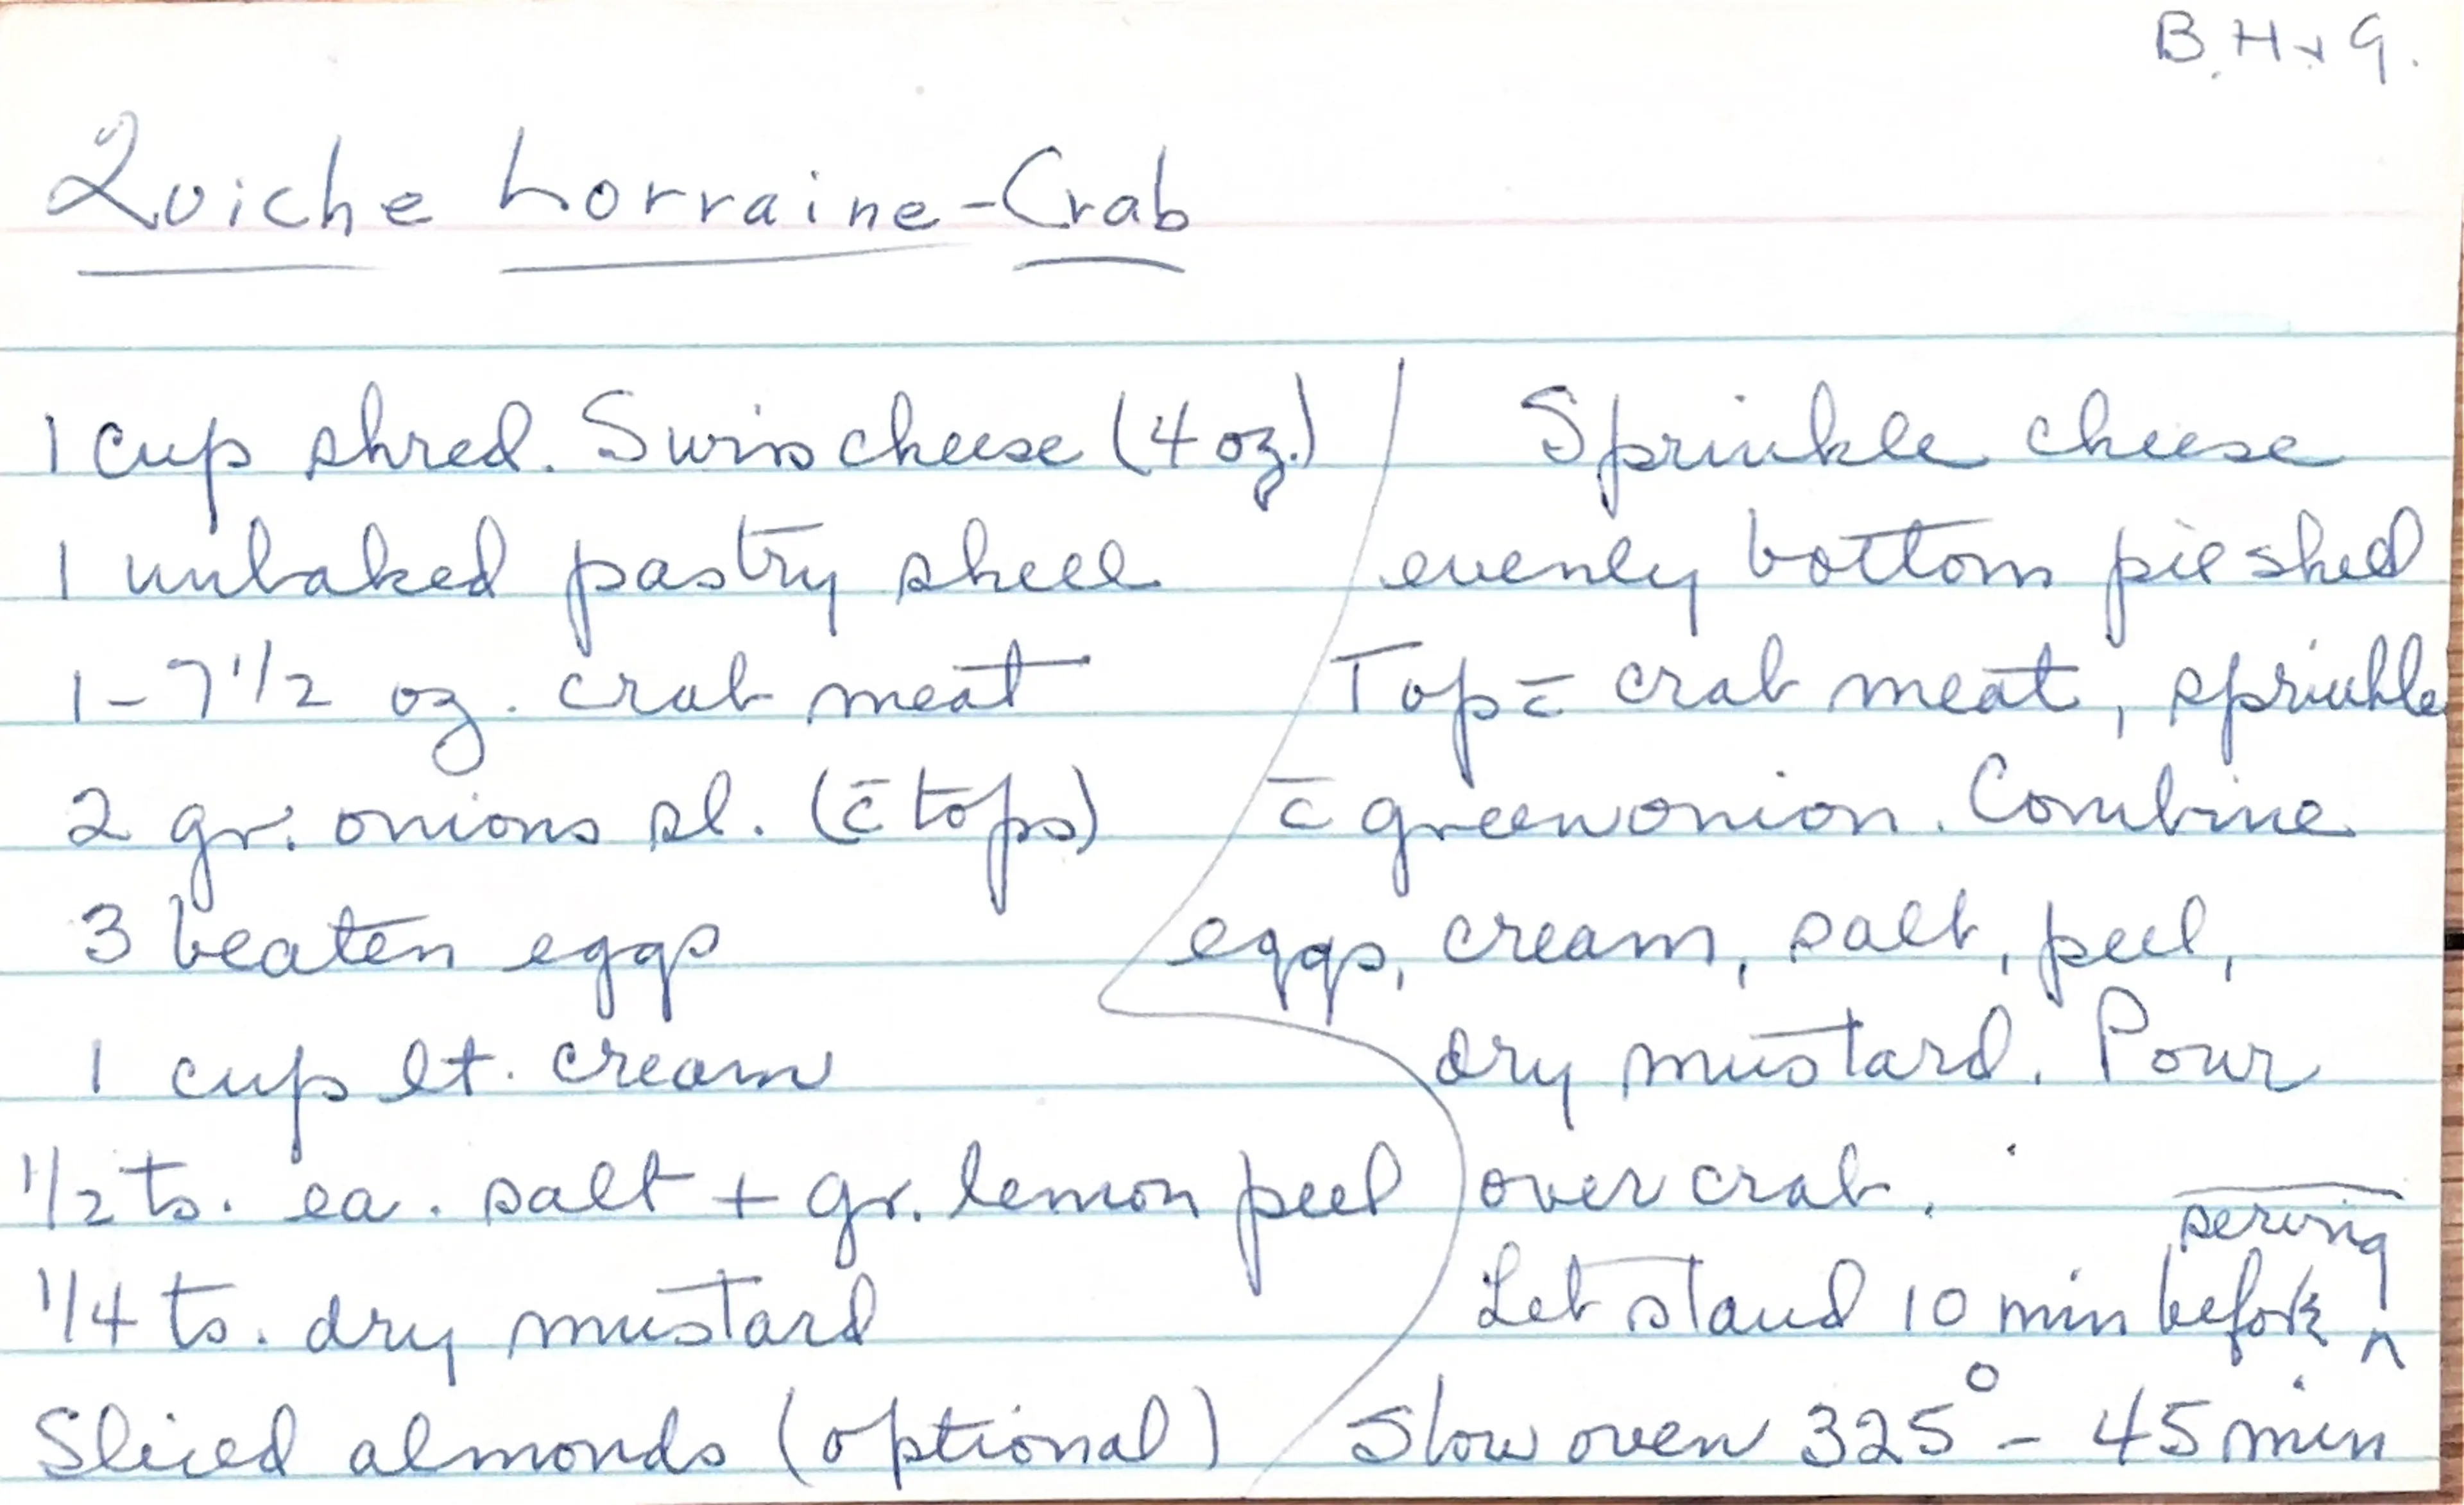 B.H.+G.
Quiche Lorraine-Crab
1 cup shred. Swiss cheese (4 oz.)
1 unbaked pastry shell
1-7 1/2 oz. crab meat
2 gr. onions sl. (c̄ tops)
3 beaten eggs
1 cup lt. cream
1/2 ts. ea. salt + gr. lemon peel
1/4 ts. dry mustard
Sliced almonds (optional)
Sprinkle cheese
evenly bottom pie shell
Top c̄ crab meat, sprinkle
c̄ green onion. Combine
eggs, cream, salt, peel,
dry mustard. Pour
over crab.
Let stand 10 min before serving
Slow oven 325° - 45 min